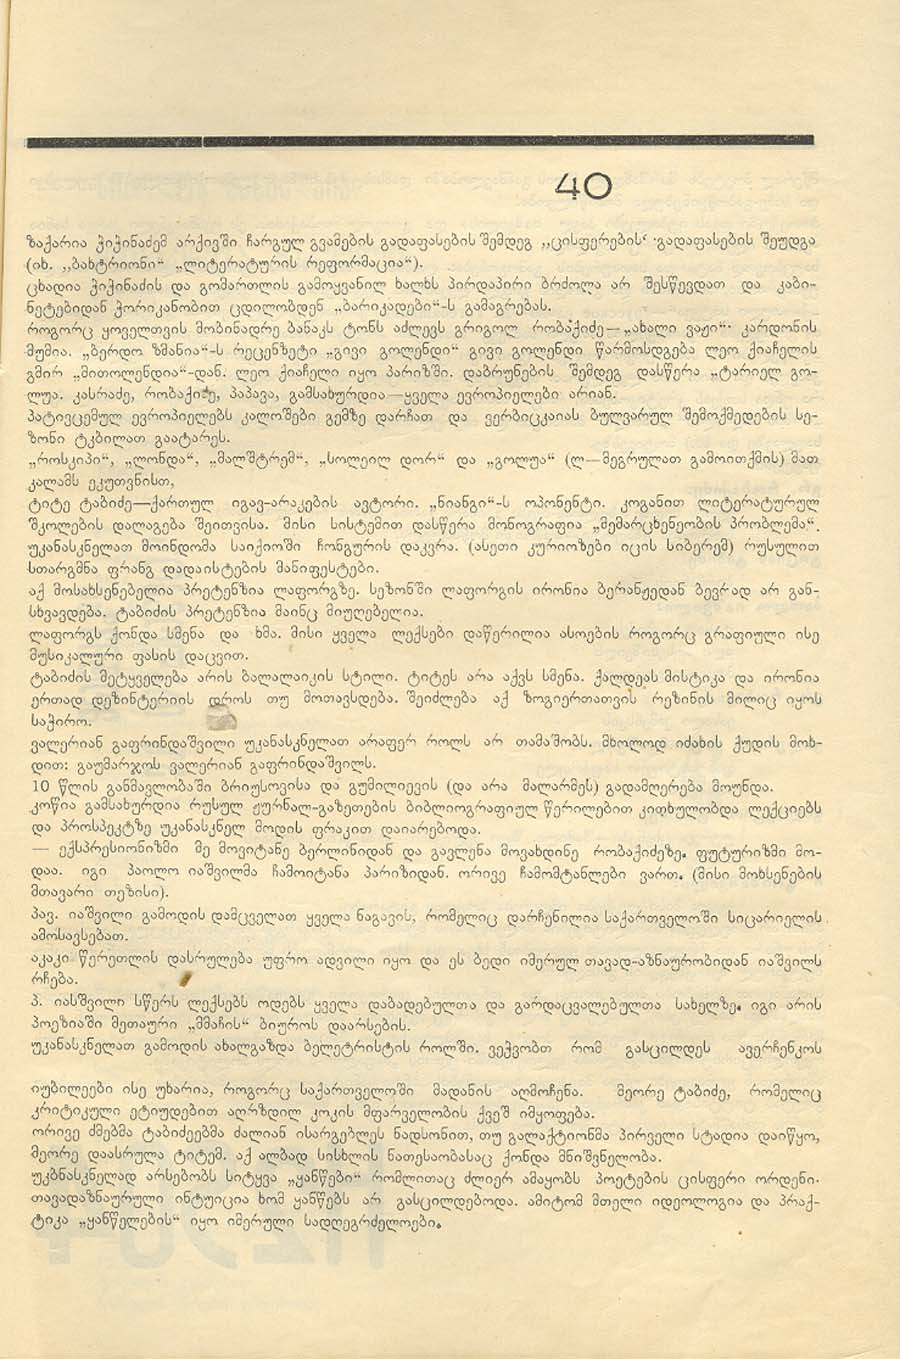 40
ზაქარია ჭიჭინაძემ არქივში ჩარგულ გვამების გადაფასების შემდეგ ,,ცისფერების‘ გადაფასების შეუდგა
(იხ. ,,ბახტრიონი“ „ლიტერატურის რეფორმაცია“).
ცხადია ჭიჭინაძის და გომართლის გამოყვანილ ხალხს პირდაპირი ბრძოლა არ შესწევდათ და კაბი-
ნეტებიდან ჭორიკანობით ცდილობდენ „ბარიკადები“-ს გამაგრებას.
როგორც ყოველთვის მობინადრე ბანაკს ტონს აძლევს გრიგოლ რობაქიძე—„ახალი ვაჟი“ კარდონის
მუმია. „ბერდო ზმანია“-ს რეცენზეტი „გივი გოლენდი“ გივი გოლენდი წარმოსდგება ლეო ქიაჩელის
გმირ „მითოლენდია“-დან. ლეო ქიაჩელი იყო პარიზში. დაბრუნების შემდეგ დასწერა „ტარიელ გო-
ლუა. კასრაძე, რობაქიძე, პაპავა, გამსახურდია—ყველა ევროპიელები არიან.
პატივცემულ ევროპიელებს კალოშები გემზე დარჩათ და ვერბიცკაიას ბულვარულ შემოქმედების სე-
ზონი ტკბილათ გაატარეს.
„როსკიპი“, „ლონდა“, „მალშტრემ“, „სოლეილ დორ“ და „გოლუა“ (ლ—მეგრულათ გამოითქმის) მათ
კალამს ეკუთვნისთ,
ტიტე ტაბიძე—ქართულ იგავ-არაკების ავტორი. „ნიანგი“-ს ოპონენტი. კოგანით ლიტერატურულ
შკოლების დალაგება შეითვისა. მისი სისტემით დასწერა მონოგრაფია „მემარცხენეობის პრობლემა“.
უკანასკნელათ მოინდომა საიქიოში ჩონგურის დაკვრა. (ასეთი კურიოზები იცის სიბერემ) რუსულით
სთარგმნა ფრანგ დადაისტების მანიფესტები.
აქ მოსახსენებელია პრეტენზია ლაფორგზე. სეზონში ლაფორგის ირონია ბერანჟედან ბევრად არ გან-
სხვავდება. ტაბიძის პრეტენზია მაინც მიუღებელია.
ლაფორგს ქონდა სმენა და ხმა. მისი ყველა ლექსები დაწერილია ასოების როგორც გრაფიული ისე
მუსიკალური ფასის დაცვით.
ტაბიძის მეტყველება არის ბალალაიკის სტილი. ტიტეს არა აქვს სმენა. ქალდეას მისტიკა და ირონია
ერთად დეზინტერიის დროს თუ მოთავსდება. შეიძლება აქ ზოგიერთათვის რეზინის მილიც იყოს
საჭირო.
ვალერიან გაფრინდაშვილი უკანასკნელათ არაფერ როლს არ თამაშობს. მხოლოდ იძახის ქუდის მოხ-
დით: გაუმარჯოს ვალერიან გაფრინდაშვილს.
10 წლის განმავლობაში ბრიუსოვისა და გუმილიევის (და არა მალარმეს) გადამღერება მოუნდა.
კოწია გამსახურდია რუსულ ჟურნალ-გაზეთების ბიბლიოგრაფიულ წერილებით კითხულობდა ლექციებს
და პროსპეკტზე უკანასკნელ მოდის ფრაკით დაიარებოდა.
— ექსპრესიონიზმი მე მოვიტანე ბერლინიდან და გავლენა მოვახდინე რობაქიძეზე. ფუტურიზმი მო-
დაა. იგი პაოლო იაშვილმა ჩამოიტანა პარიზიდან. ორივე ჩამომტანლები ვართ. (მისი მოხსენების
მთავარი თეზისი).
პავ. იაშვილი გამოდის დამცველათ ყველა ნაგავის, რომელიც დარჩენილია საქართველოში სიცარიელის
ამოსავსებათ.
აკაკი წერეთლის დასრულება უფრო ადვილი იყო და ეს ბედი იმერულ თავად-აზნაურობიდან იაშვილს
რჩება.
პ. იასშვილი სწერს ლექსებს ოდებს ყველა დაბადებულთა და გარდაცვალებულთა სახელზე. იგი არის
პოეზიაში მეთაური „მმაჩის“ ბიუროს დაარსების.
უკანასკნელათ გამოდის ახალგაზდა ბელეტრისტის როლში. ვეჭვობთ რომ გასცილდეს ავერჩენკოს
იუბილეები ისე უხარია, როგორც საქართველოში მადანის აღმოჩენა. მეორე ტაბიძე, რომელიც
კრიტიკული ეტიუდებით აღრზდილ კოკის მფარველობის ქვეშ იმყოფება.
ორივე ძმებმა ტაბიძეებმა ძალიან ისარგებლეს ნადსონით, თუ გალაქტიონმა პირველი სტადია დაიწყო,
მეორე დაასრულა ტიტემ. აქ ალბად სისხლის ნათესაობასაც ქონდა მნიშვნელობა.
უკბნასკნელად არსებობს სიტყვა „ყანწები“ რომლითაც ძლიერ ამაყობს პოეტების ცისფერი ორდენი.
თავადაზნაურული ინტუიცია ხომ ყანწებს არ გასცილდებოდა. ამიტომ მთელი იდეოლოგია და პრაქ-
ტიკა „ყანწელების“ იყო იმერული სადღეგრძელოები.